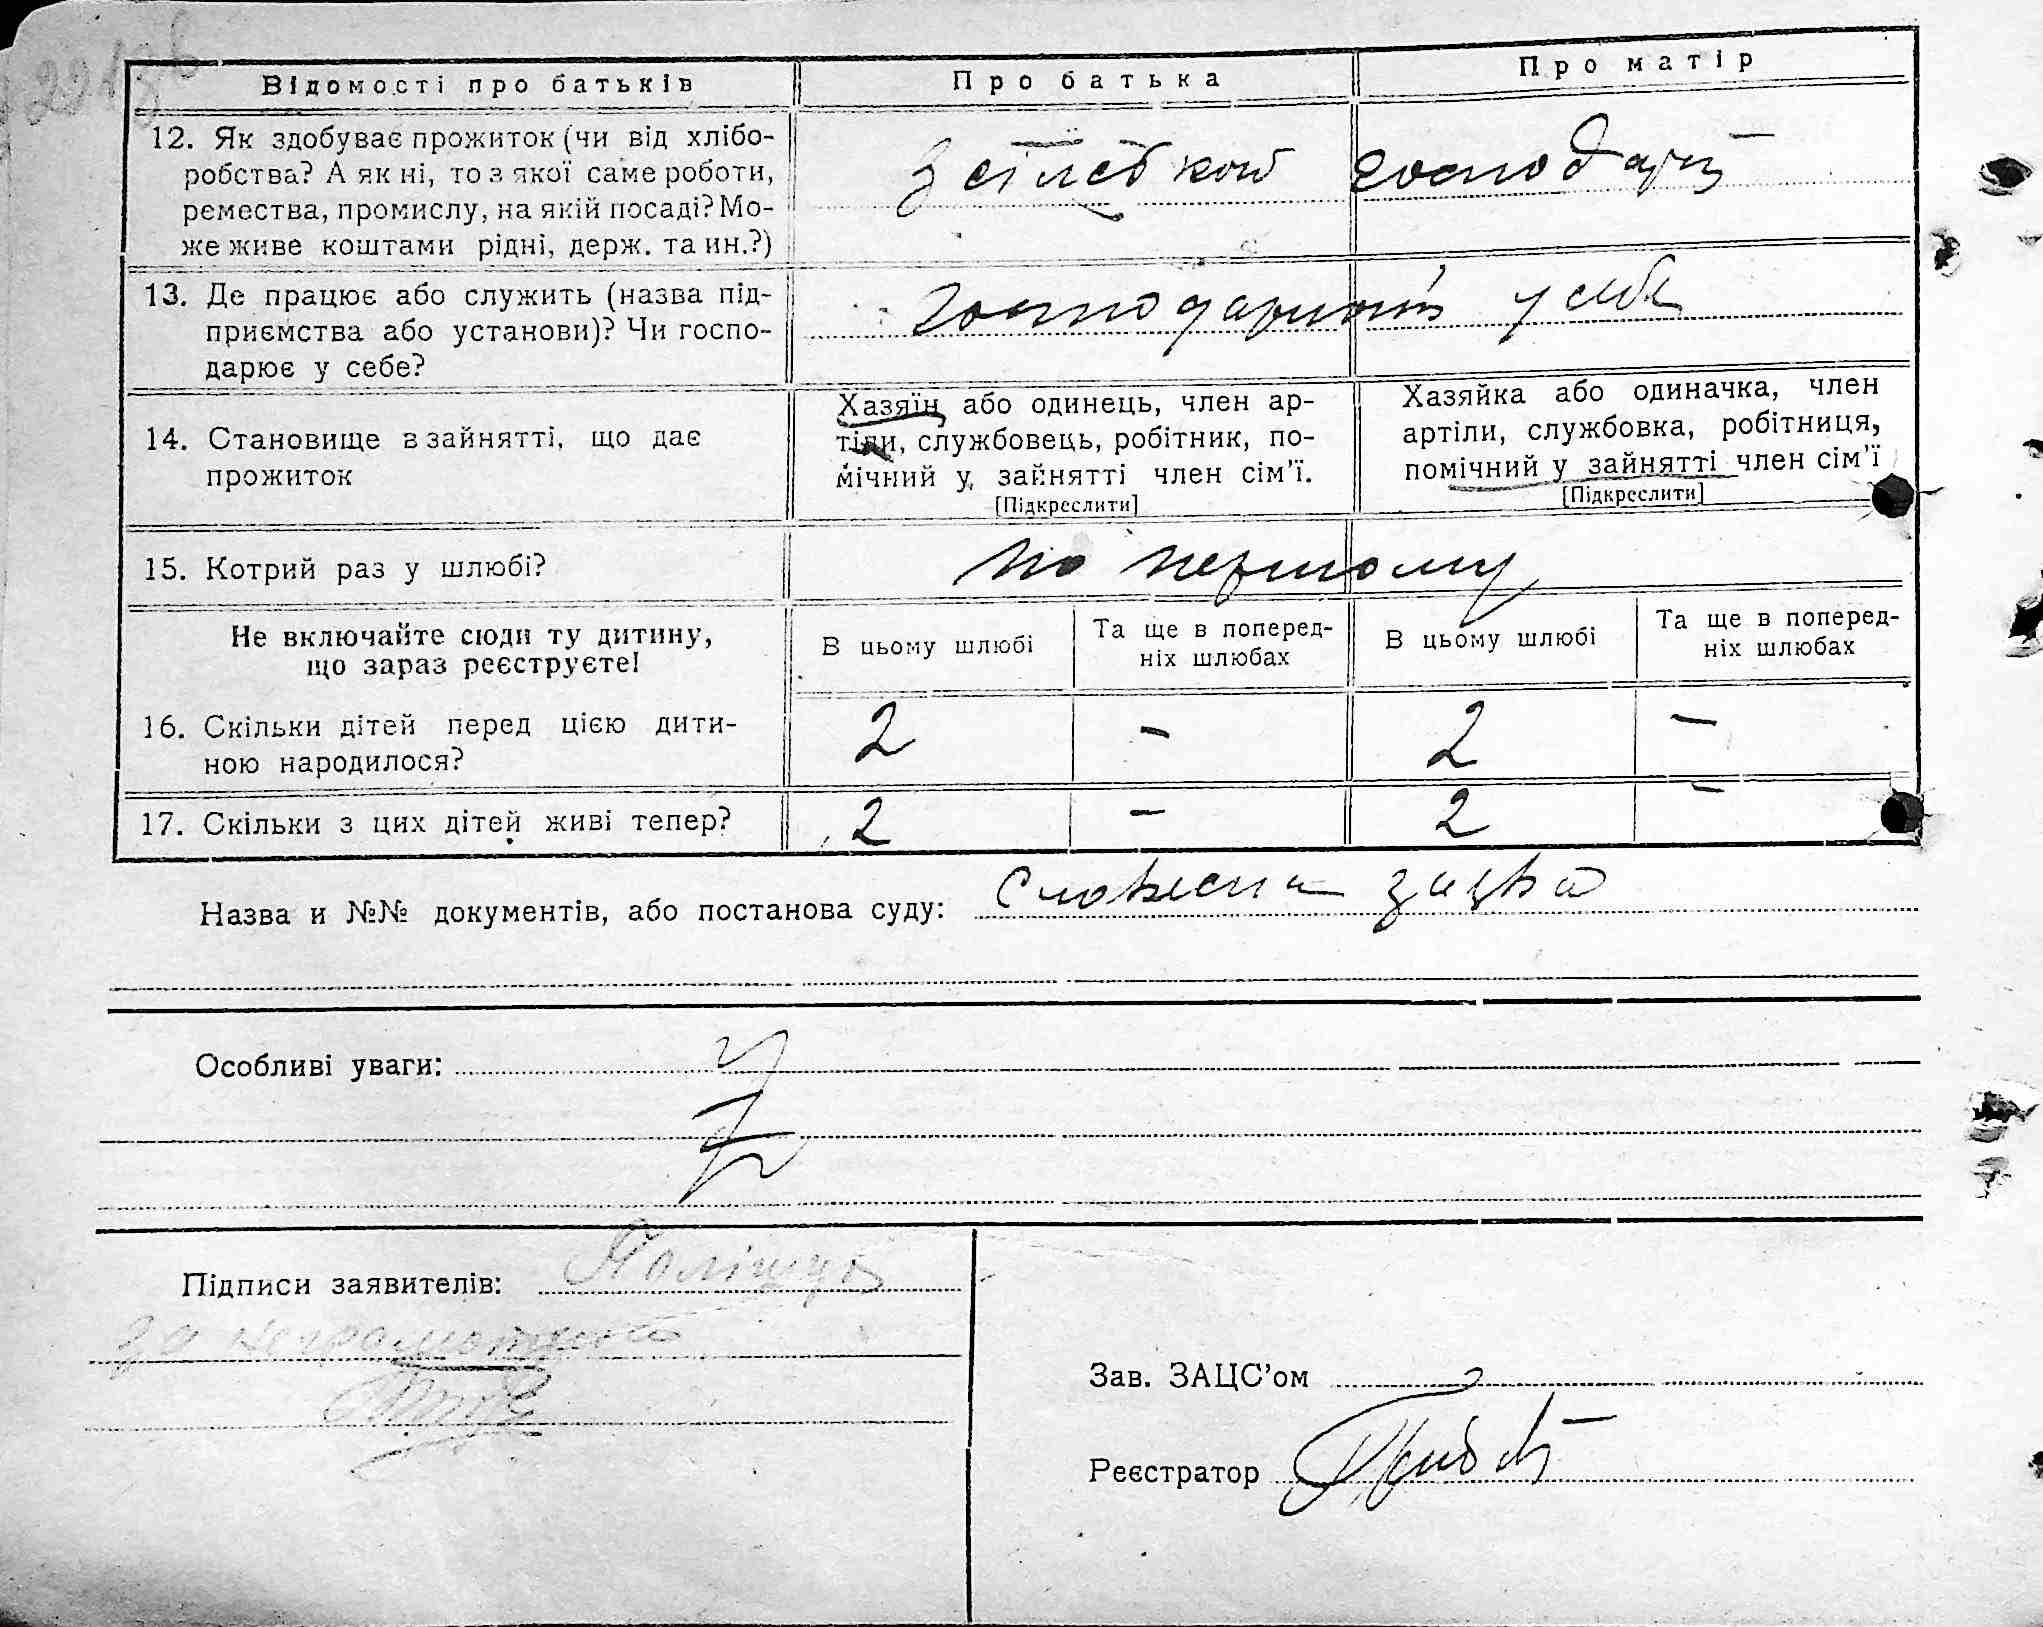 Відомості про батьків
Про батька
Про матір
12. Як здобуває прожиток (чи від хлібо-
робства? А як ні, то з якої саме роботи,
ремества, промислу, на якій посаді? Мо-
же живе коштами рідні, держ. та ин.?)
З сільської господарці
13. Де працює або служить (назва під-
приємства або установи)? Чи госпо-
дарює у себе?
у себе
14. Становище в зайнятті, що дає
прожиток
Хазяїн або одинець, член ар-
тіли, службовець, робітник, по-
мічний у зайнятті член сім'ї.
[Підкреслити]
Хазяйка або одиначка, член
артіли, службовка, робітниця,
помічний у зайнятті член сім'ї
[Підкреслити]
15. Котрий раз у шлюбі?
по першому
Не включайте сюди ту дитину,
що зараз реєструєте!
В цьому шлюбі
Та ще в поперед-
ніх шлюбах
В цьому шлюбі
Та ще в поперед-
ніх шлюбах
16. Скільки дітей перед цією дити-
ною народилося?
2 – 2 –
17. Скільки з цих дітей живі тепер?
2 – 2 –
Назва и №№ документів, або постанова суду: Словесна заява
Особливі уваги:
Підписи заявителів: Поліщук
за неграмотного
Зав. ЗАЦС'ом
Реєстратор